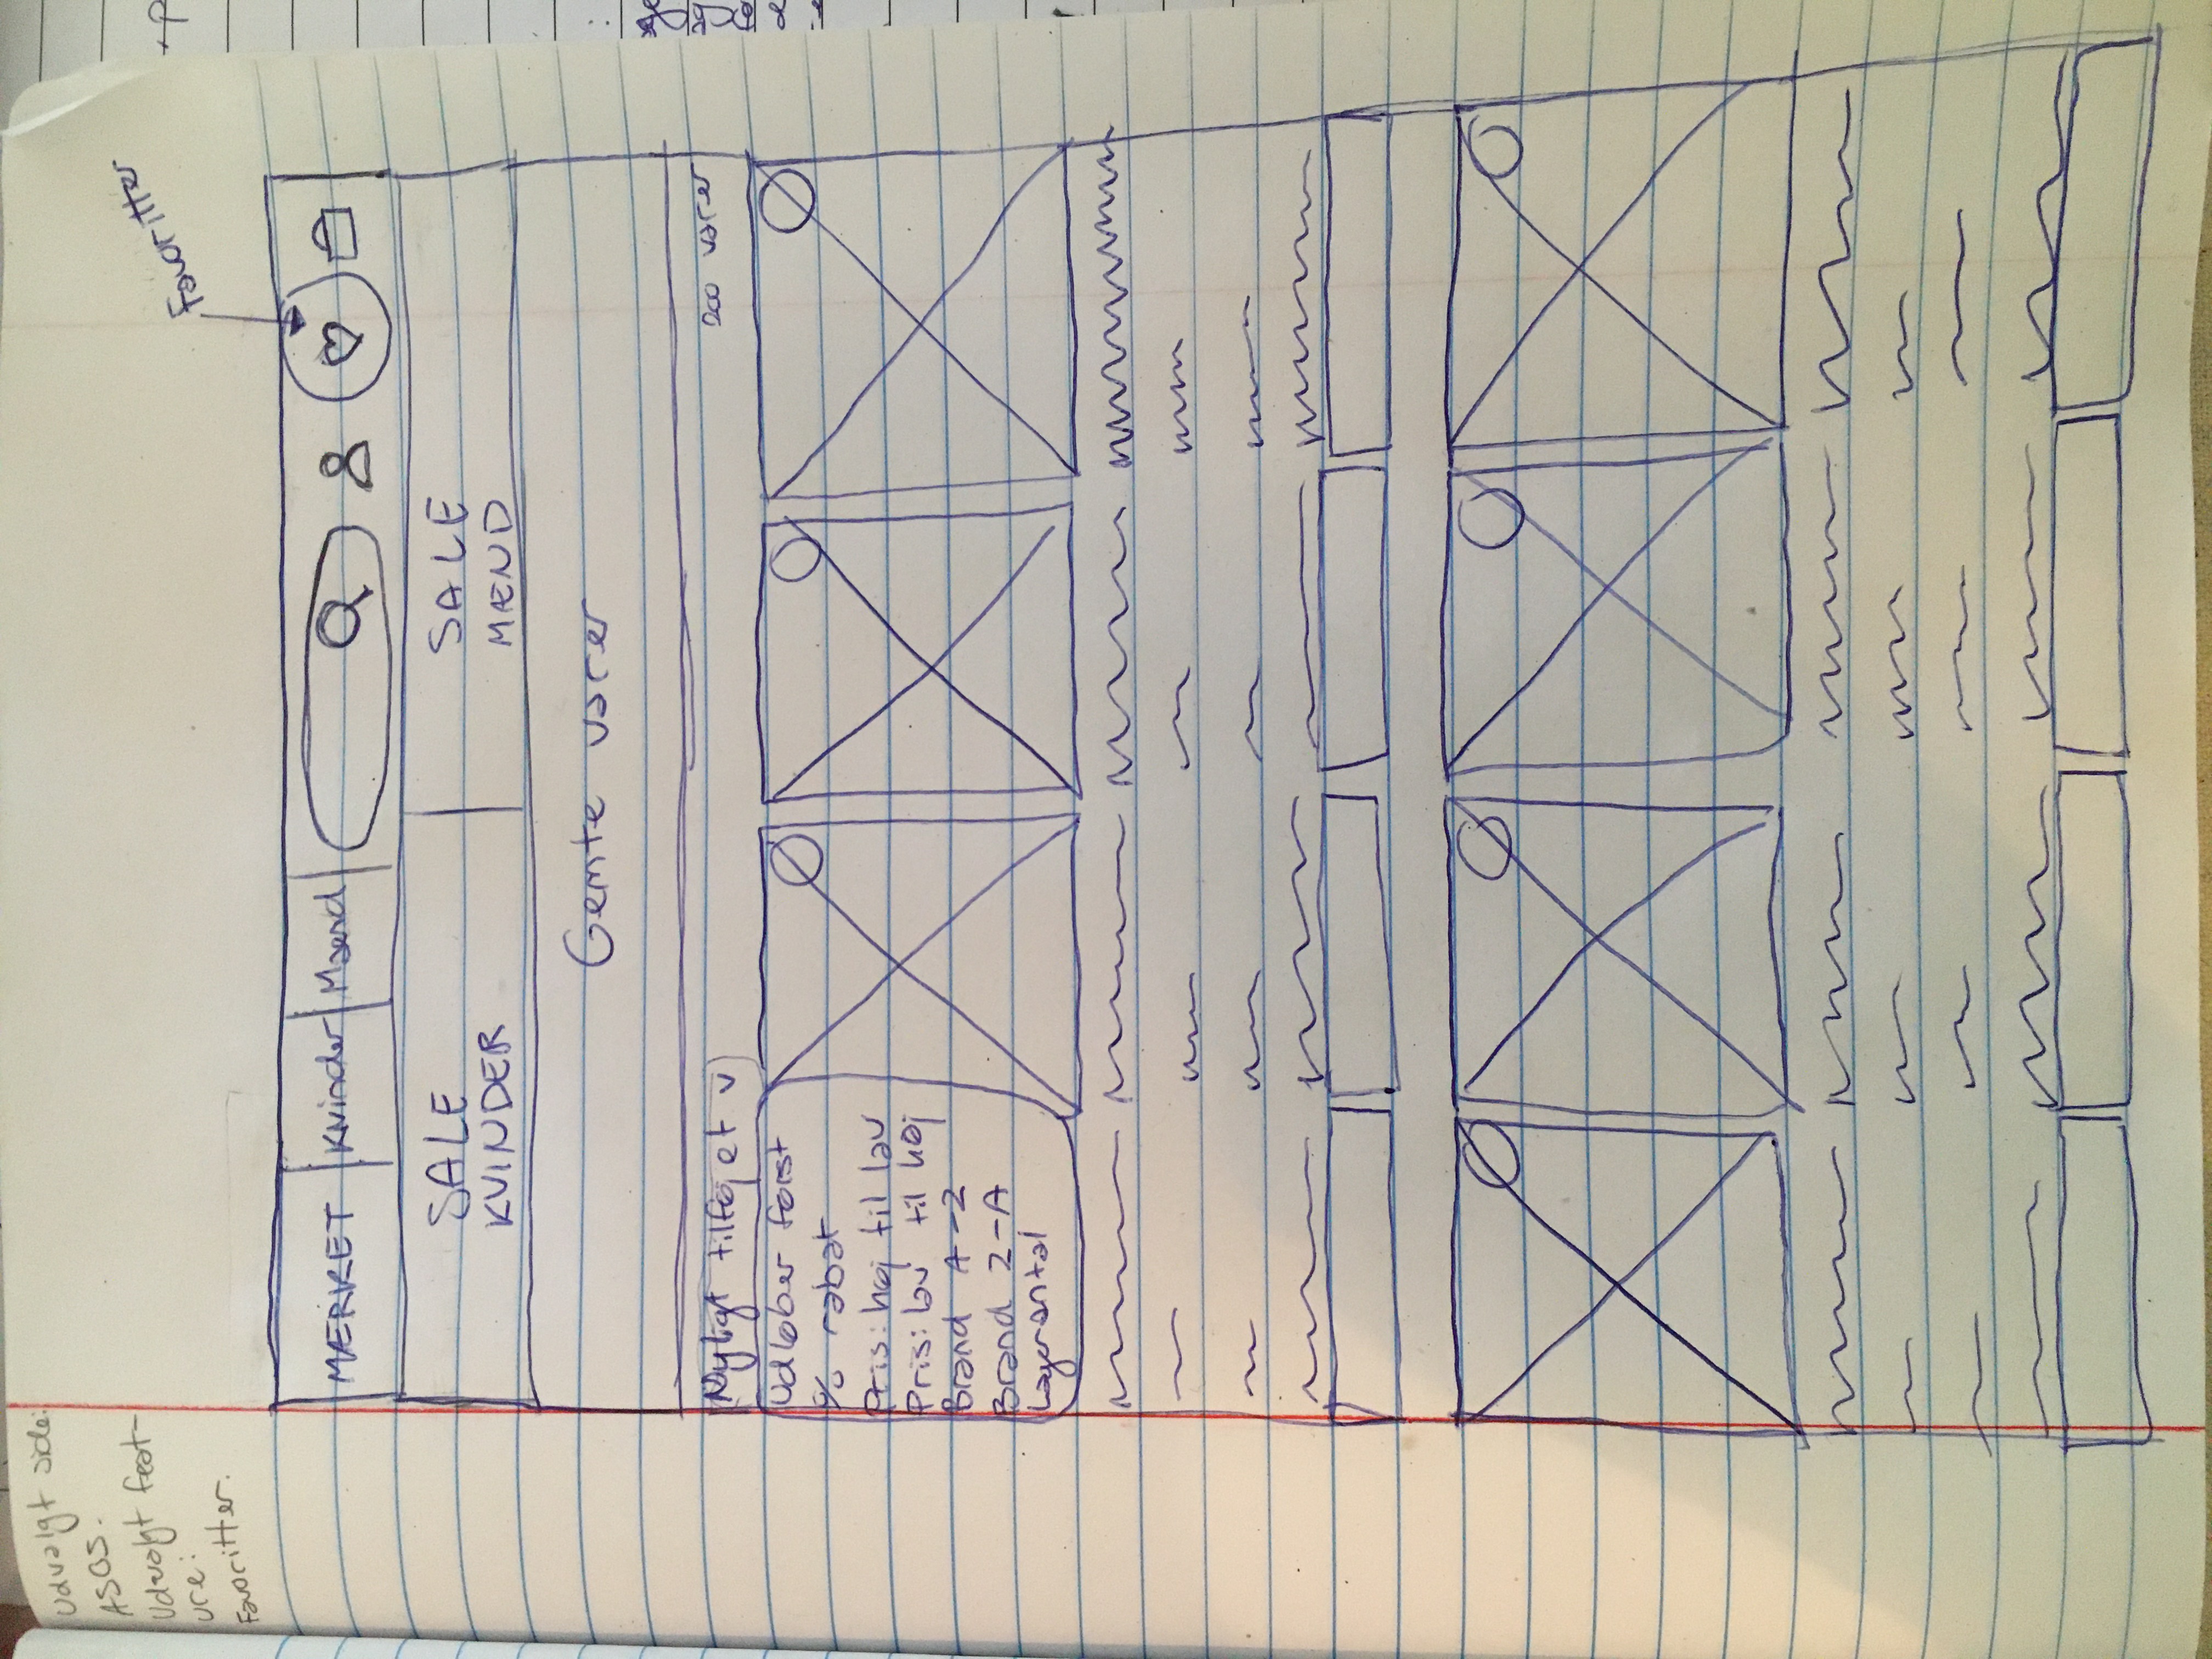 Udvalgt side:
ASOS.
Udvalgt feat-
ure:
Favoritter.
Favoritter
MÆRKET Kvinder Mænd
SALE SALE
KVINDER MÆND
Gemte varer
Nyligt tilføjet v 200 varer
Udløber først
% rabat
Pris: høj til lav
Pris: lav til høj
Brand A-Z
Brand Z-A
Lagerantal